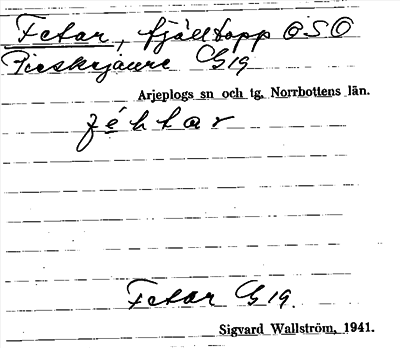 Fetar, fjälltopp OSO
Pieskejaure G 19
Arjeplogs sn och tg, Norrbottens län.
féhtar
Fetar G 19.
Sigvard Wallström, 1941.